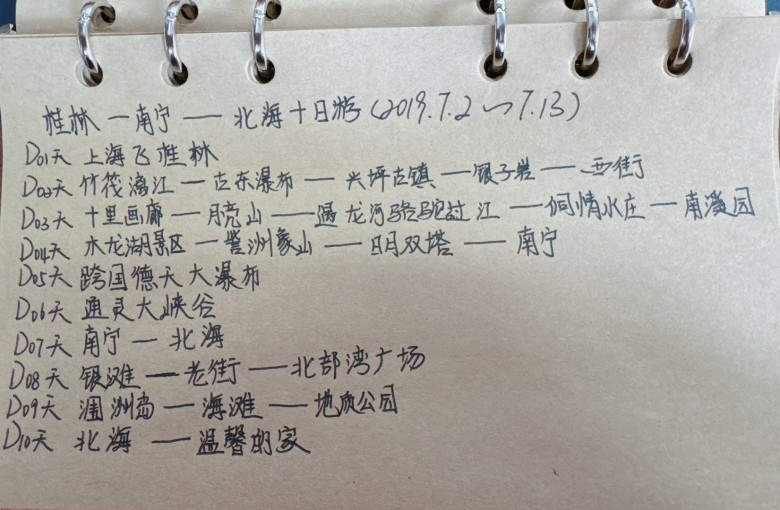 桂林—南宁—北海十日游(2019.7.2～7.13)
D01天 上海飞桂林
D02天 竹筏漓江—古东瀑布—兴坪古镇—银子岩—西街
D03天 十里画廊—月亮山—遇龙河骆驼过江—侗情水庄—南溪园
D04天 木龙湖景区—訾洲象山—日月双塔—南宁
D05天 跨国德天大瀑布
D06天 通灵大峡谷
D07天 南宁—北海
D08天 银滩—老街—北部湾广场
D09天 涠洲岛—海滩—地质公园
D10天 北海—温馨的家